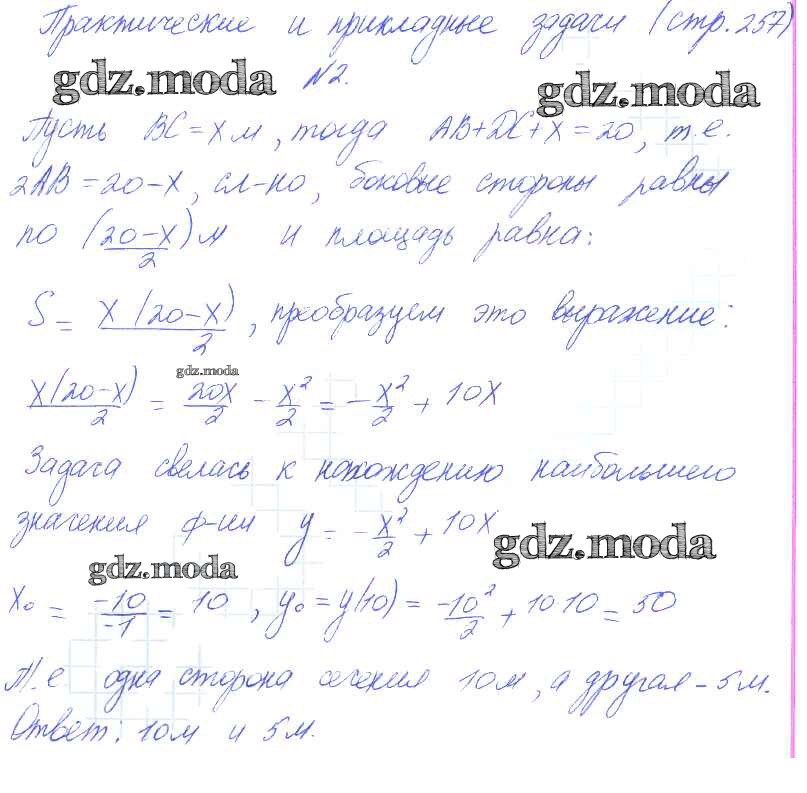 Практические и прикладные задачи (стр. 257)
gdz.moda №2. gdz.moda
Пусть BC = x м, тогда AB+DC+x=20, т.е.
2AB=20-x, сл-но, боковые стороны равны
по (20-x)/2 м и площадь равна:
S = x(20-x)/2, преобразуем это выражение:
gdz.moda
x(20-x)/2 = 20x/2 - x²/2 = -x²/2 + 10x
Задача свелась к нахождению наибольшего
значения ф-ии y = -x²/2 + 10x
gdz.moda gdz.moda
x₀ = -10/-1 = 10, y₀ = y(10) = -10²/2 + 10·10 = 50
Т.е одна сторона сечения 10м, а другая - 5м.
Ответ: 10м и 5м.